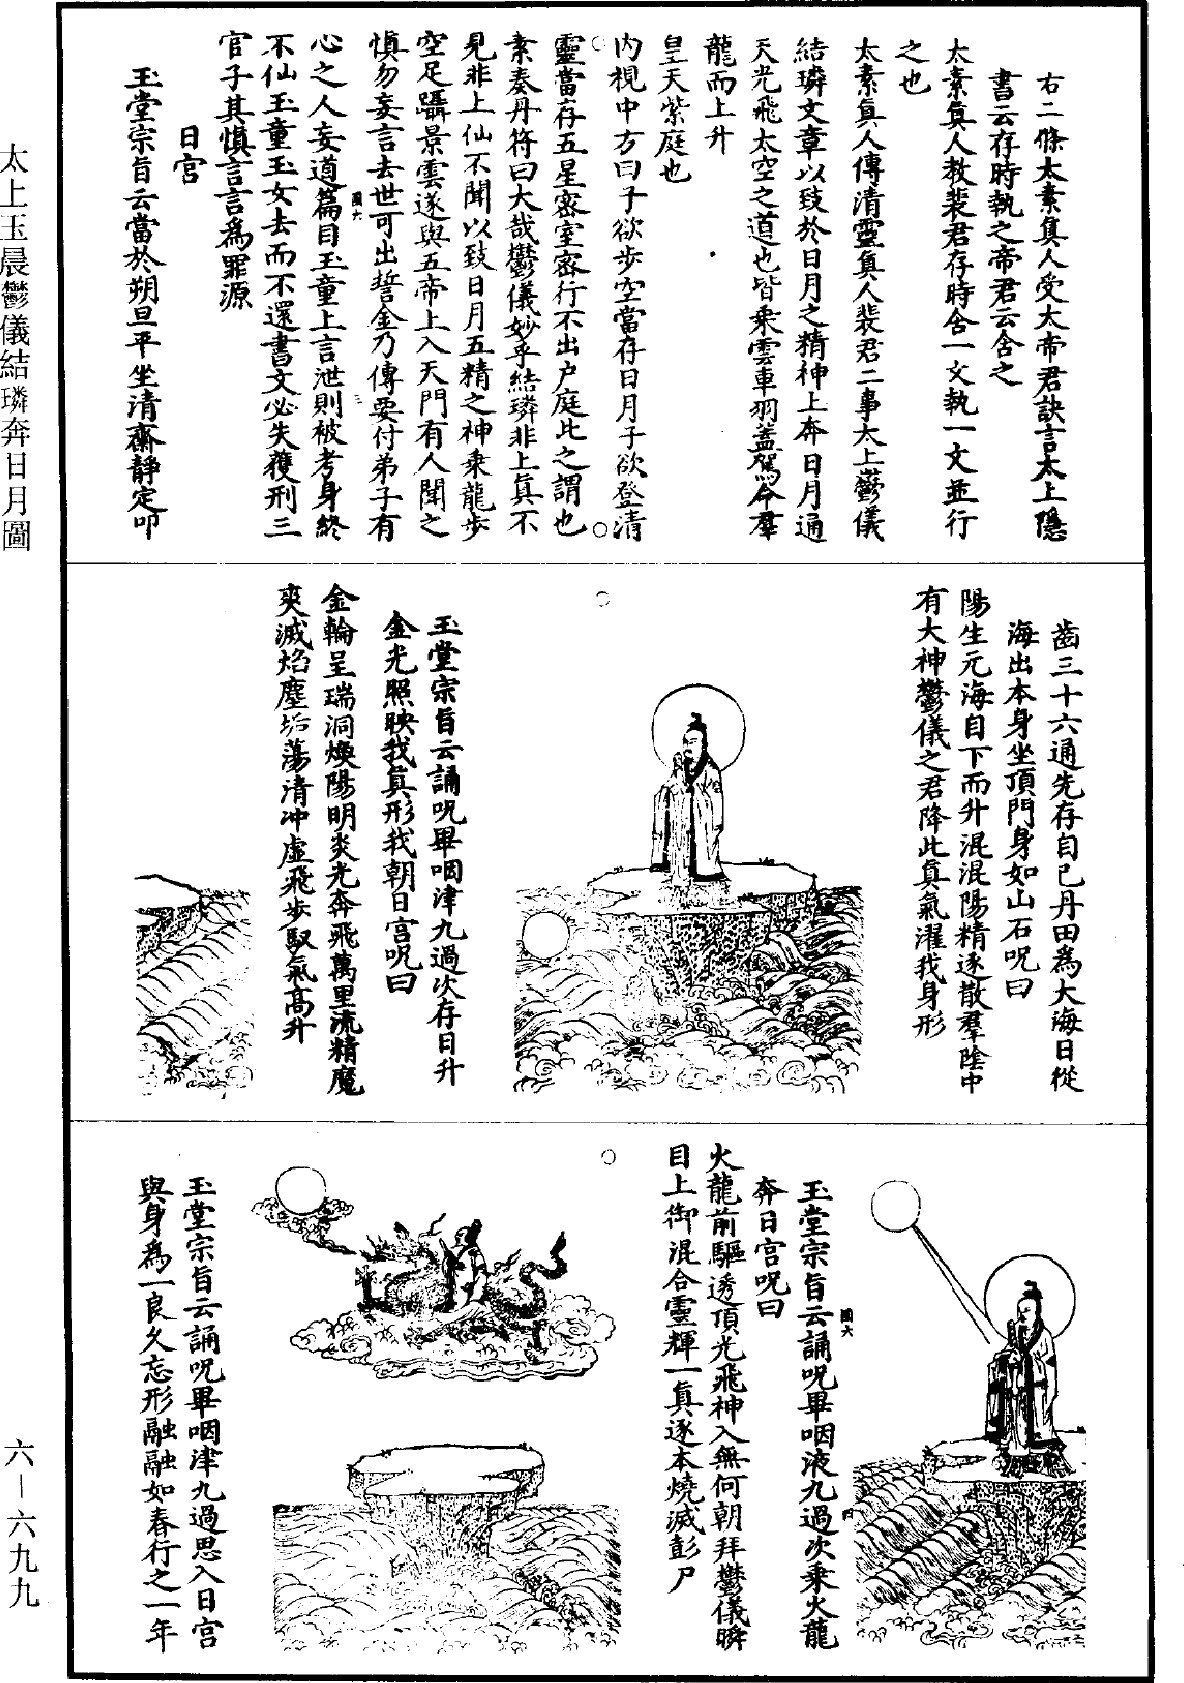 右二條太素真人受太帝君訣言太上隱
書云存時執之帝君云含之
太素真人教裴君存時含一文執一文並行
之也
太素真人傳清靈真人裴君二事太上鬱儀
結璘文章以致於日月之精神上奔日月通
天光飛太空之道也皆乘雲車羽蓋駕命羣
龍而上升
皇天紫庭也
內視中方曰子欲步空當存日月子欲登清
靈當存五星密室密行不出戶庭此之謂也
素奏丹符曰大哉鬱儀妙乎結璘非上真不
見非上仙不聞以致日月五精之神乘龍步
空足躡景雲遂與五帝上入天門有人聞之
慎勿妄言去世可出誓金乃傳要付弟子有
心之人妄道篇目玉童上言泄則被考身終
不仙玉童玉女去而不還書文必失獲刑三
官子其慎言言為罪源
日宮
玉堂宗旨云當於朔旦平坐清齋靜定叩
齒三十六通先存自己丹田為大海日從
海出本身坐頂門身如山石呪曰
陽生元海自下而升混混陽精逐散羣陰中
有大神鬱儀之君降此真氣濯我身形
玉堂宗旨云誦呪畢咽津九過次存日升
金光照映我真形我朝日宮呪曰
金輪呈瑞洞煥陽明炎光奔飛萬里流精魔
爽滅焰塵垢蕩清冲虛飛步馭氣高升
玉堂宗旨云誦呪畢咽液九過次乘火龍
奔日宮呪曰
火龍前驅透頂光飛神入無何朝拜鬱儀瞬
目上御混合靈輝一真逐本燒滅彭尸
玉堂宗旨云誦呪畢咽津九過思入日宮
與身為一良久忘形融融如春行之一年
太上玉晨鬱儀結璘奔日月圖
六—六九九